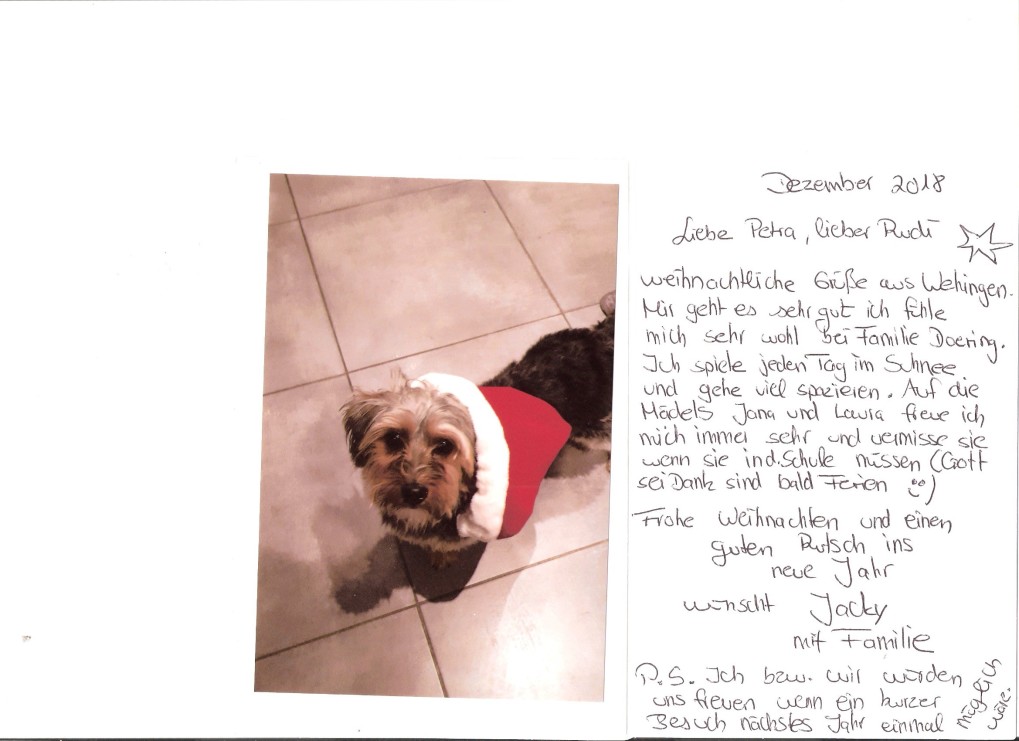 Dezember 2018
Liebe Petra, lieber Rudi
weihnachtliche Grüße aus Wehingen.
Mir geht es sehr gut ich fühle
mich sehr wohl bei Familie Doering.
Ich spiele jeden Tag im Schnee
und gehe viel spazieren. Auf die
Mädels Jana und Laura freue ich
mich immer sehr und vermisse sie
wenn sie in d. Schule müssen (Gott
sei Dank sind bald Ferien ☺)
Frohe Weihnachten und einen
guten Rutsch ins
neue Jahr
wünscht Jacky
mit Familie
P.S. Ich bzw. wir würden
uns freuen wenn ein kurzer
Besuch nächstes Jahr einmal
möglich
wäre.